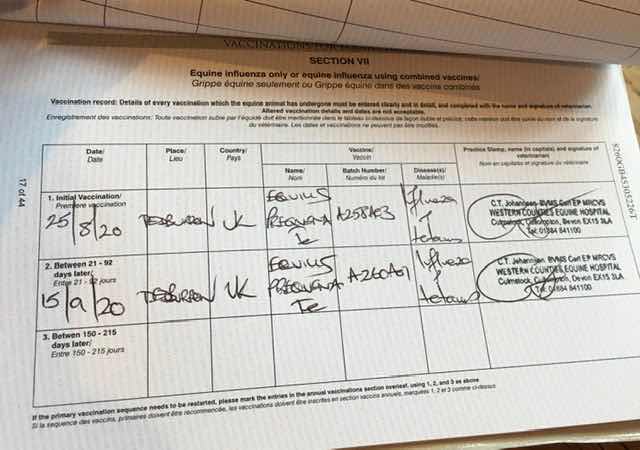 VACCINATIONS FOR
SECTION VII
Equine influenza only or equine influenza using combined vaccines/
Grippe équine seulement ou Grippe équine dans des vaccins combinés
Vaccination record: Details of every vaccination which the equine animal has undergone must be entered clearly and in detail, and completed with the name and signature of veterinarian.
Altered vaccination details and dates are not acceptable.
Enregistrement des vaccinations: Toute vaccination subie par l'équidé doit être mentionnée dans le tableau ci-dessous de façon lisible et précise, cette mention doit être suivie du nom et de la signature
du vétérinaire. Les dates et vaccinations ne peuvent pas être modifiés.
Date/
Date
Place/
Lieu
Country/
Pays
Vaccine/
Vaccin
Name/
Nom
Batch Number/
Numéro du lot
Disease(s)/
Maladie(s)
Practice Stamp, name (in capitals) and signature of
veterinarian
Nom en capitales et signature du vétérinaire
1. Initial Vaccination/
Première vaccination
25/8/20
UK
EQUILIS
PREQUENZA
Te
A258A03
Influenza
&
tetanus
C.T. Johannsen BVMS Cert EP MRCVS
WESTERN COUNTIES EQUINE HOSPITAL
Culmstock, Cullompton, Devon EX15 3LA
Tel: 01884 841100
2. Between 21 - 92
days later/
Entre 21 - 92 jours
15/9/20
UK
EQUILIS
PREQUENZA
Te
A260A01
Influenza
&
tetanus
C.T. Johannsen BVMS Cert EP MRCVS
WESTERN COUNTIES EQUINE HOSPITAL
Culmstock, Cullompton, Devon EX15 3LA
Tel: 01884 841100
3. Betwen 150 - 215
days later/
Entre 150 - 215 jours
If the primary vaccination sequence needs to be restarted, please mark the entries in the annual vaccinations section overleaf, using 1, 2, and 3 as above
Si la sequence des vaccins, primaires doivent être recommencée, les vaccinations doivent être inscrites en section vaccins annuels, marquées 1, 2 et 3 comme ci-dessus
17 of 44